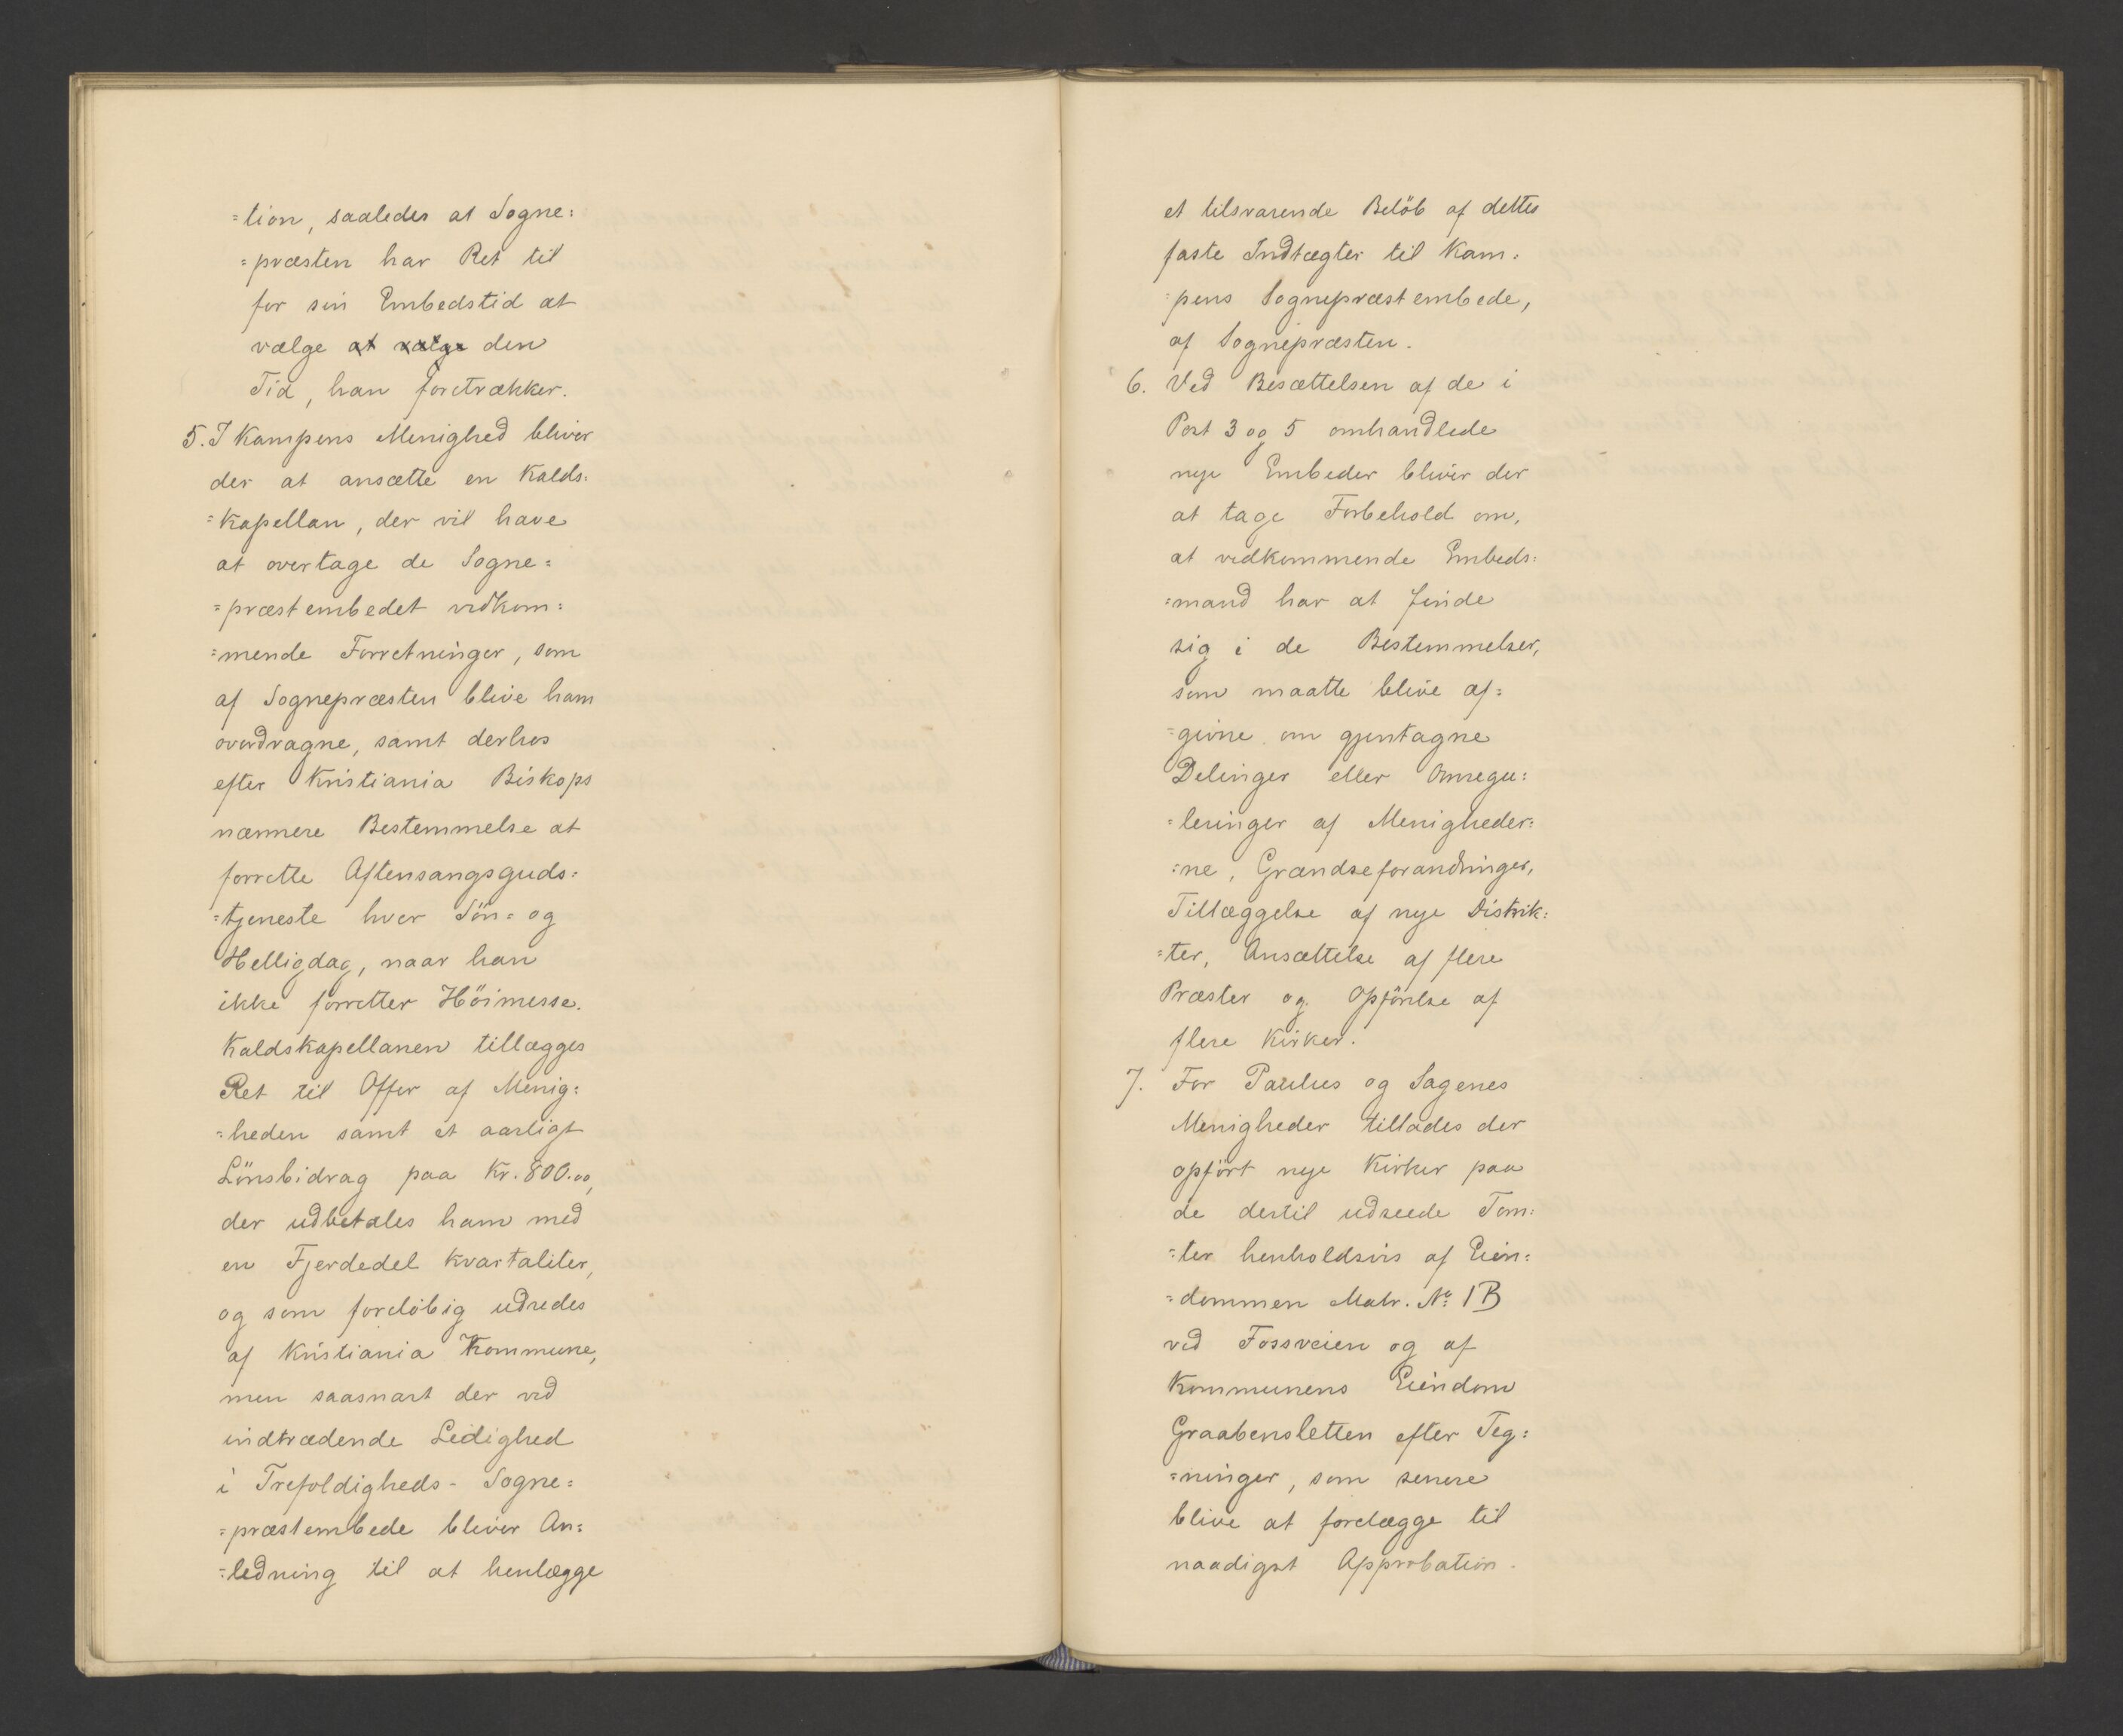 =tion, saaledes at Sogne=
=præsten har Ret til
for sin Embedstid at
vælge at vælge den
Tid, han foretrækker.
5. I Kampens Menighed bliver
der at ansætte en Kalds=
=kapellan, der vil have
at overtage de Sogne=
=præstembedet vedkom=
=mende Forretninger, som
af Sognepræsten blive ham
overdragne, samt derhos
efter Kristiania Biskops
nærmere Bestemmelse at
forrette Aftensangsguds=
=tjeneste hver Søn= og
Helligdag, naar han
ikke forretter Höimesse.
Kaldskapellanen tillægges
Ret til Offer af Menig=
=heden samt et aarligt
Lönsbidrag paa Kr. 800.00,
der udbetales ham med
en Fjerdedel kvartaliter,
og som foreløbig udredes
af Kristiania Kommune,
men saasnart der ved
indtrædende Ledighed
i Trefoldigheds- Sogne=
=præstembede bliver An=
=ledning til at henlægge
et tilsvarende Belöb af dettes
faste Indtægter til Kam=
=pens Sognepræstembede,
af Sognepræsten.
6. Ved Besættelsen af de i
Post 3 og 5 omhandlede
nye Embeder bliver der
at tage Forbehold om,
at vedkommende Embeds=
=mand har at finde
sig i de Bestemmelser,
som maatte blive af=
=givne om gjentagne
Delinger eller Omregu=
=leringer af Menigheder=
=ne, Grændseforandringer,
Tillæggelse af nye Distrik=
=ter, Ansættelse af flere
Præster og Opförelse af
flere Kirker.
7. For Paulus og Sagenes
Menigheder tillades der
opfört nye Kirker paa
de dertil udseede Tom=
=ter henholdsvis af Eien=
=dommen Matr. No: 1B
ved Fossveien og af
Kommunens Eiendom
Graabensletten efter Teg=
=ninger, som senere
blive at forelægge til
naadigst Approbation.